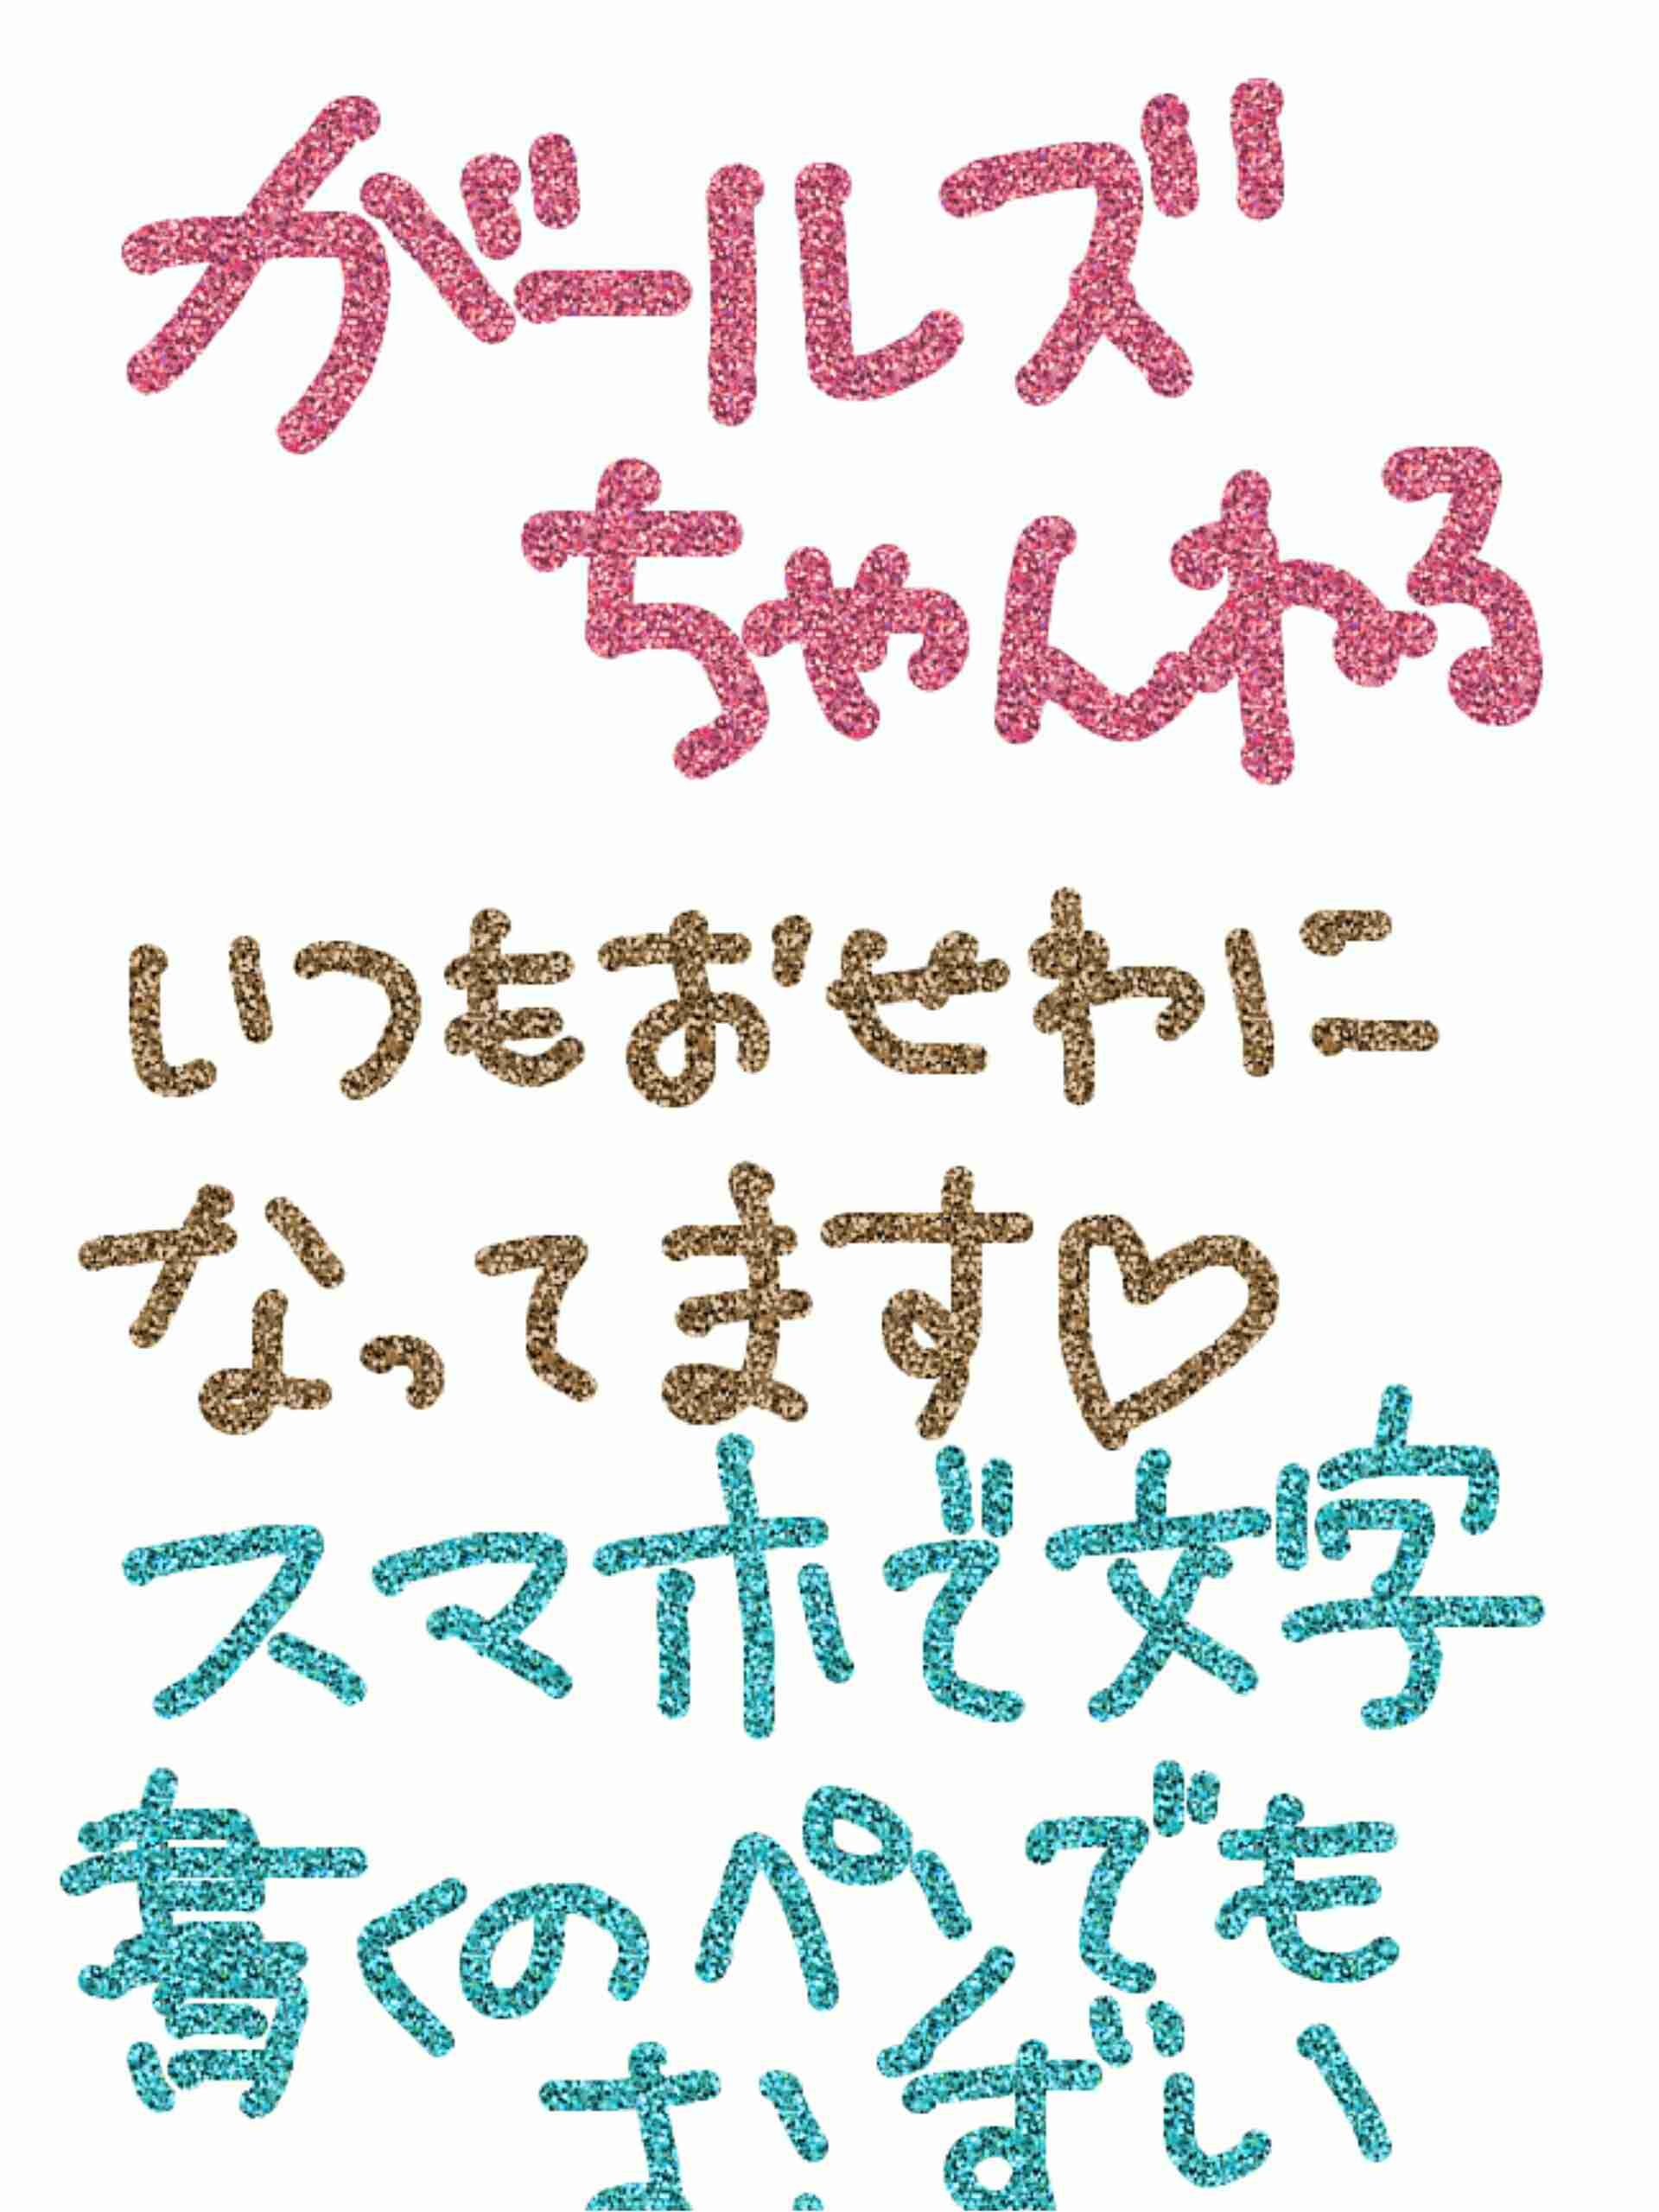 ガールズ
ちゃんねる
いつもおせわに
なってます♡
スマホで文字
書くのペンでも
むずい